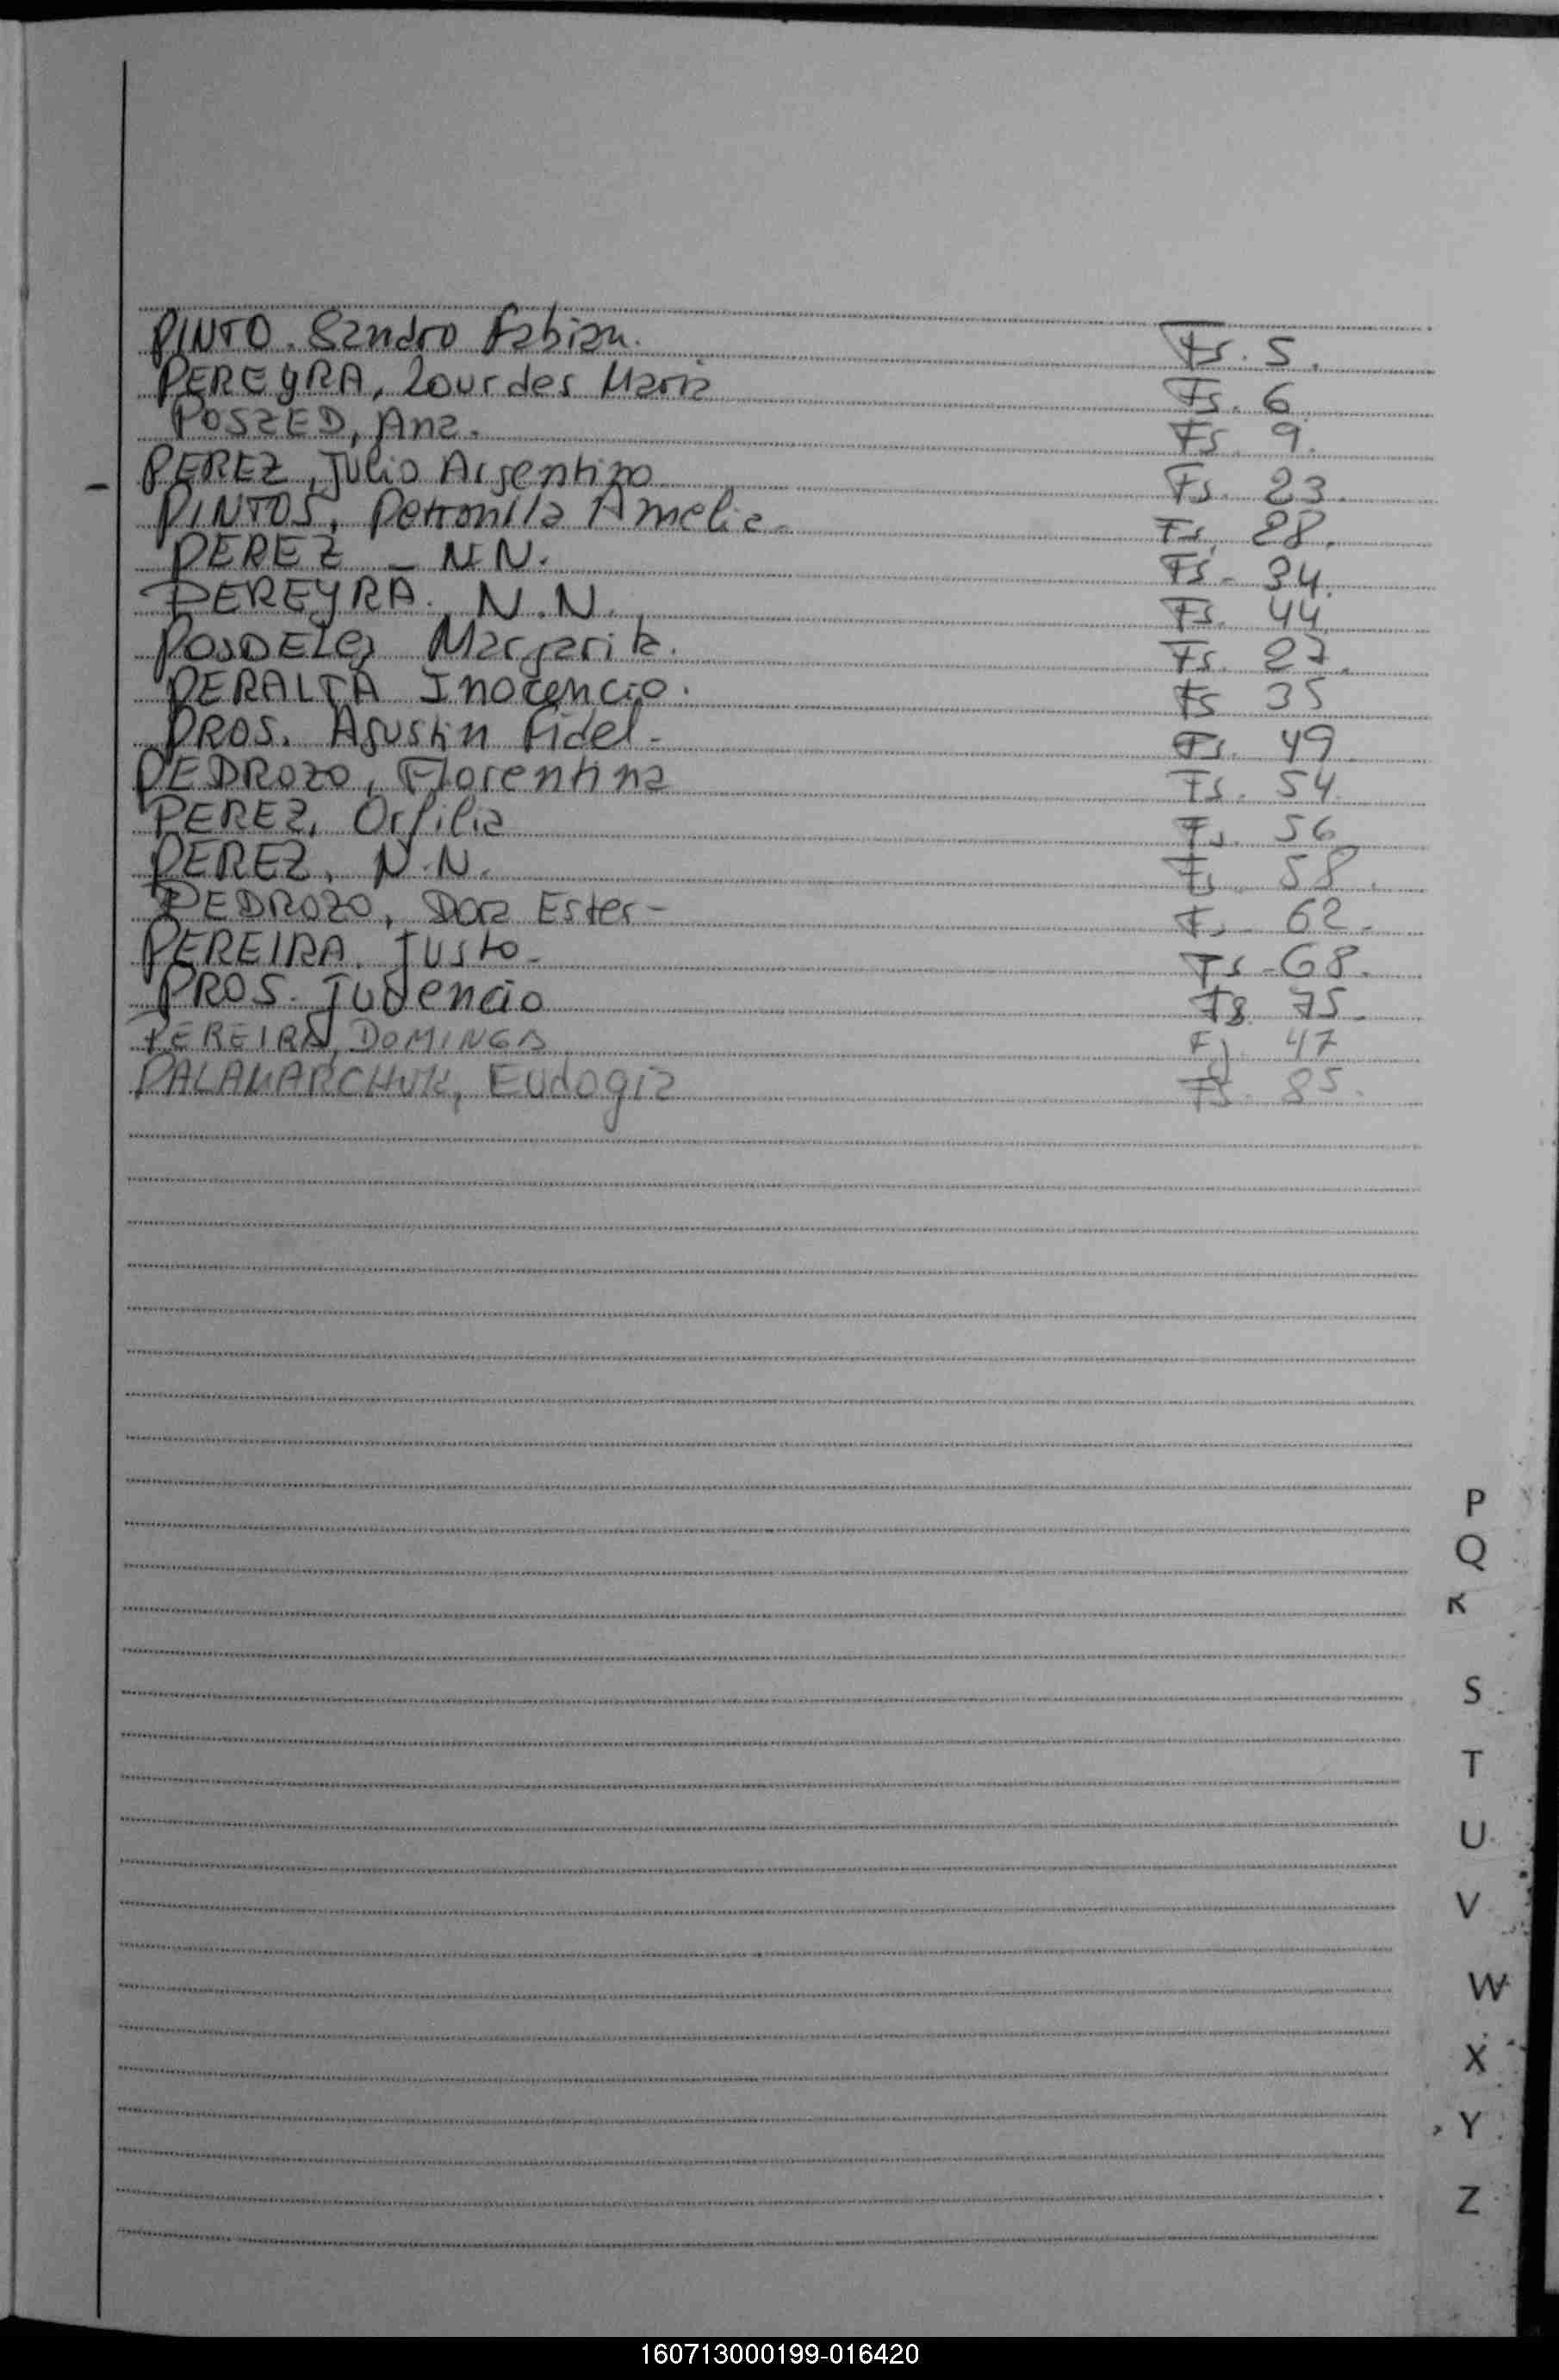 PINTO. Sandro Fabian. Fs. 5.
PEREYRA, Lourdes Maria Fs. 6
POSZED, Ana. Fs. 9.
PEREZ, Julio Argentino Fs. 23.
PINTOS, Petronila Amelia. Fs. 28.
PEREZ _ N.N. Fs. 34.
PEREYRA. N.N. Fs. 44
Margarita. Fs. 27.
PERALTA Inocencio. Fs 35
PROS. Agustin Fidel- Fs. 49
PEDROZO, Florentina Fs. 54
PEREZ, Orfilia Fs. 56
PEREZ, N.N. Fs. 58.
PEDROZO, Dora Ester- Fs. 62.
PEREIRA. Justo- Fs-68.
PROS. Juvencio Fs 75.
PEREIRA, DOMINGA Fs 47
PALAMARCHUK, Eudogia Fs. 85.
P
Q
R
S
T
U
V
W
X
Y
Z
160713000199-016420